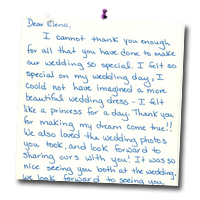 Dear Elena,
I cannot thank you enough
for all that you have done to make
our wedding so special. I felt so
special on my wedding day, I
could not have imagined a more
beautiful wedding dress - I felt
like a princess for a day. Thank you
for making my dream come true!!
We also loved the wedding photos
you took, and look forward to
sharing ours with you! It was so
nice seeing you both at the wedding,
we look forward to seeing you